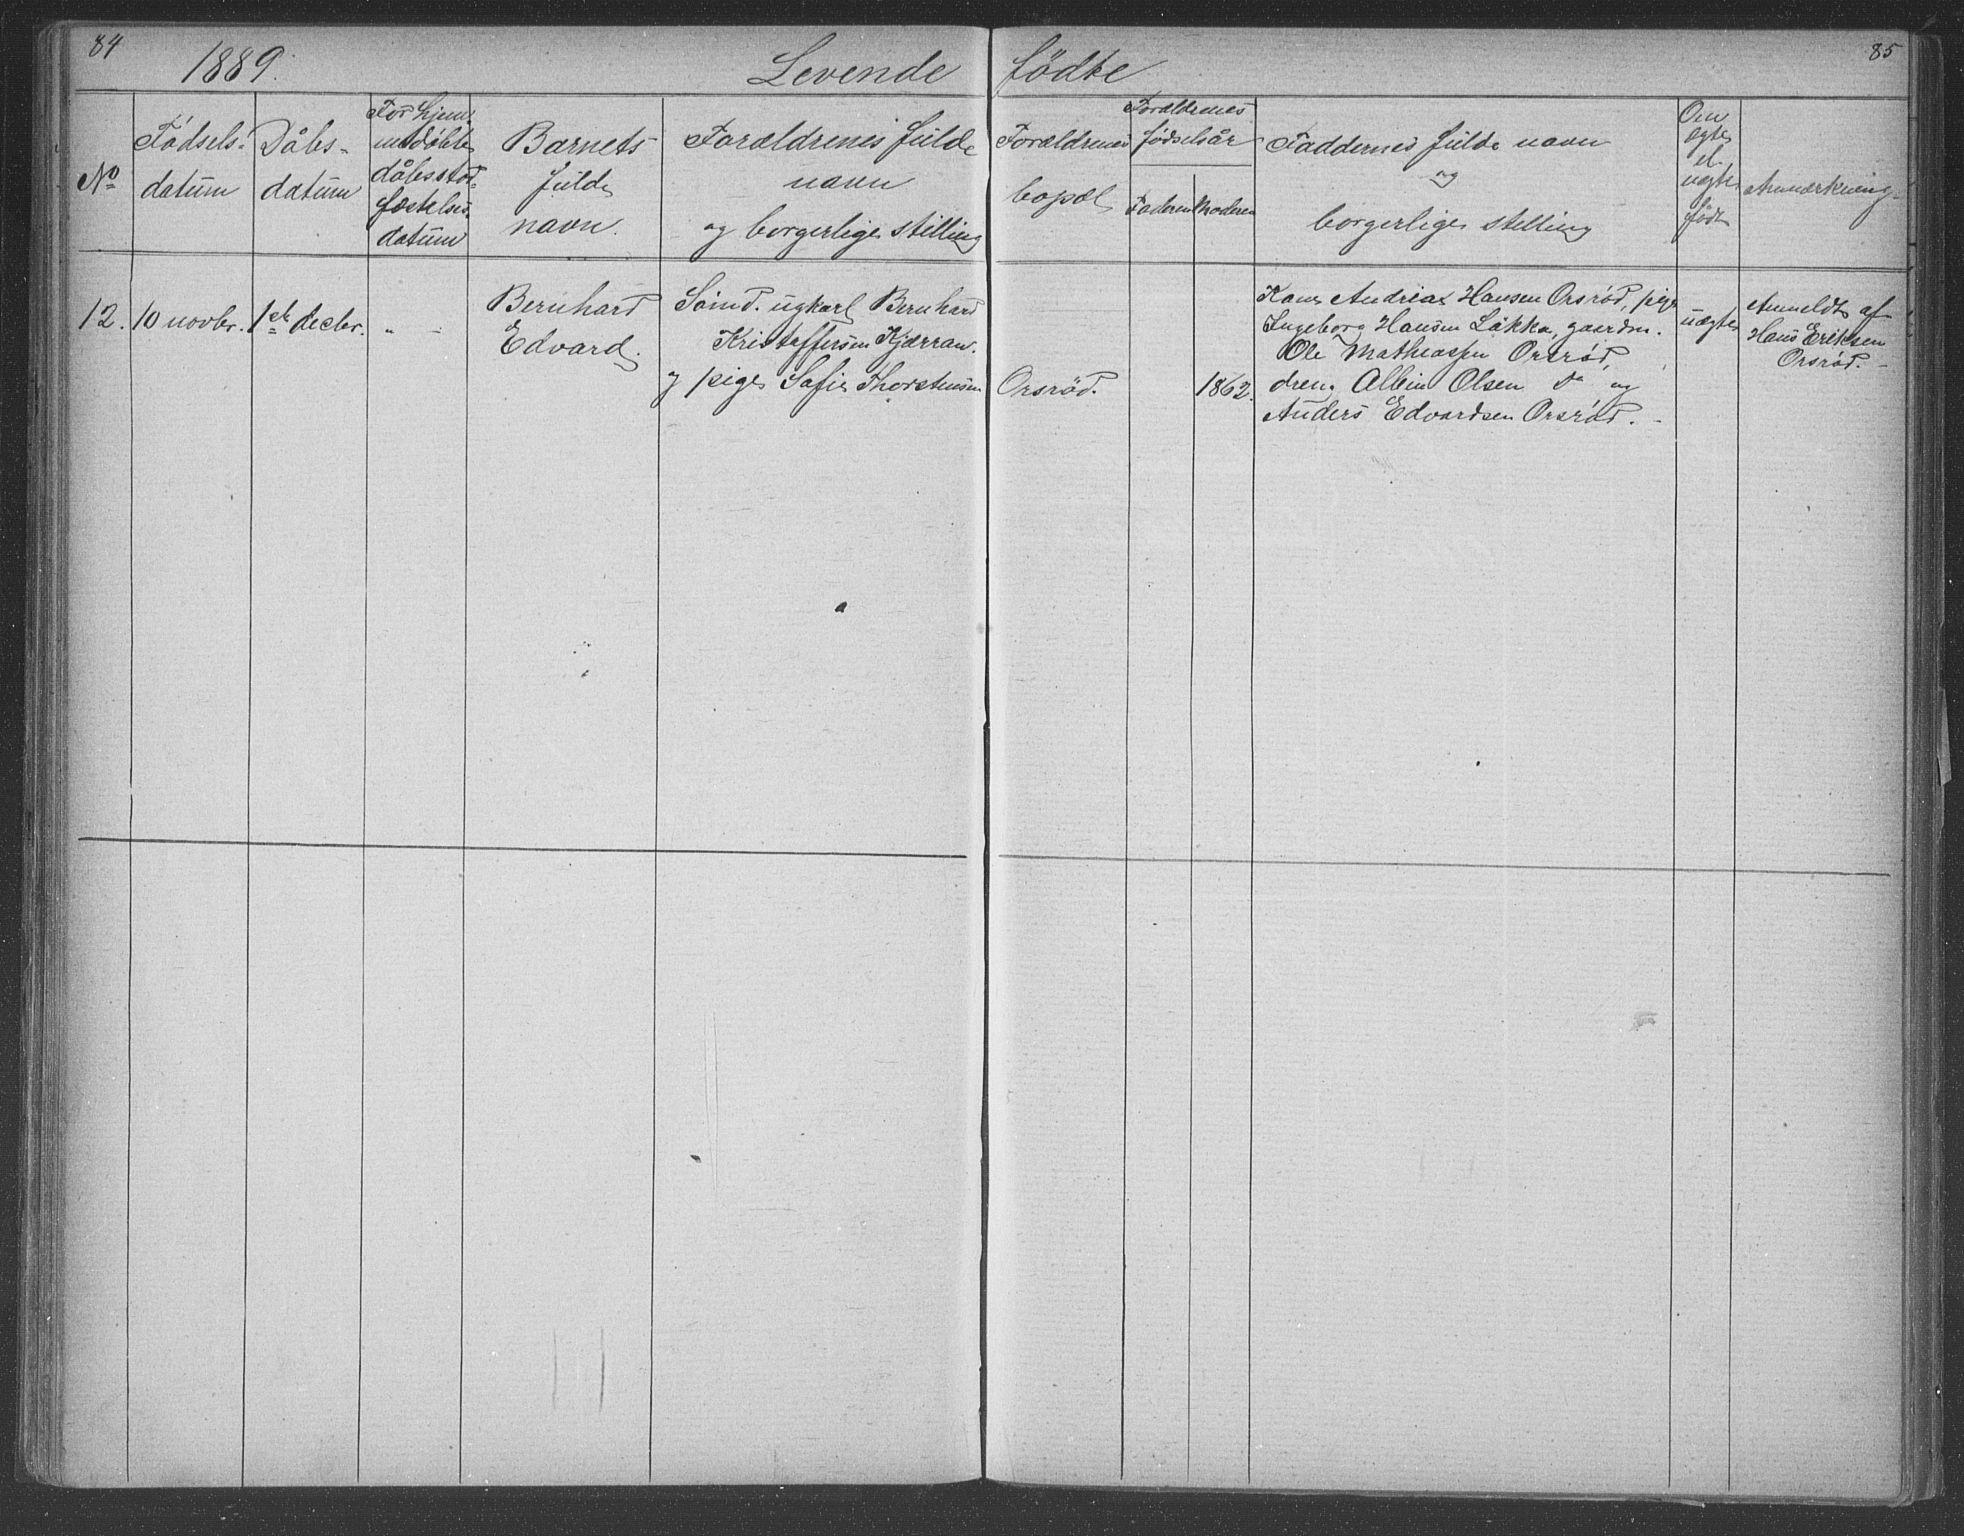 84
1889.
Levende fødte
85
No
Fødsels-
datum
Dåbs-
datum
For hjem-
medøbte
dåbsstad-
fæstelses-
datum
Barnets
fulde
navn.
Forældrenes fulde
navn
og borgerlige stilling
Forældrenes
bopæl
Forældrenes
fødselsår
Faderen
Moderen
Faddernes fulde navn
og
borgerlige stilling
Om
ægte
el.
uægte
født
Anmærkning
12.
10 novbr.
1ste decbr.
" -
Bernhard
Edvard.
ugkarl Bernhard
Kristoffersen Kjærran.
og pige Sofie Thorstensen
Orsrød.
1862.
Kone Andrea Hansen Orsrød, pige
Ingeborg Hansen Løkka, gaardm.
Ole Mathiassen Orsrød,
dreng Albin Olsen og
Anders Edvardsen Orsrød. -
uægte
Anmeldt af
Hans Eriksen
Orsrød. -